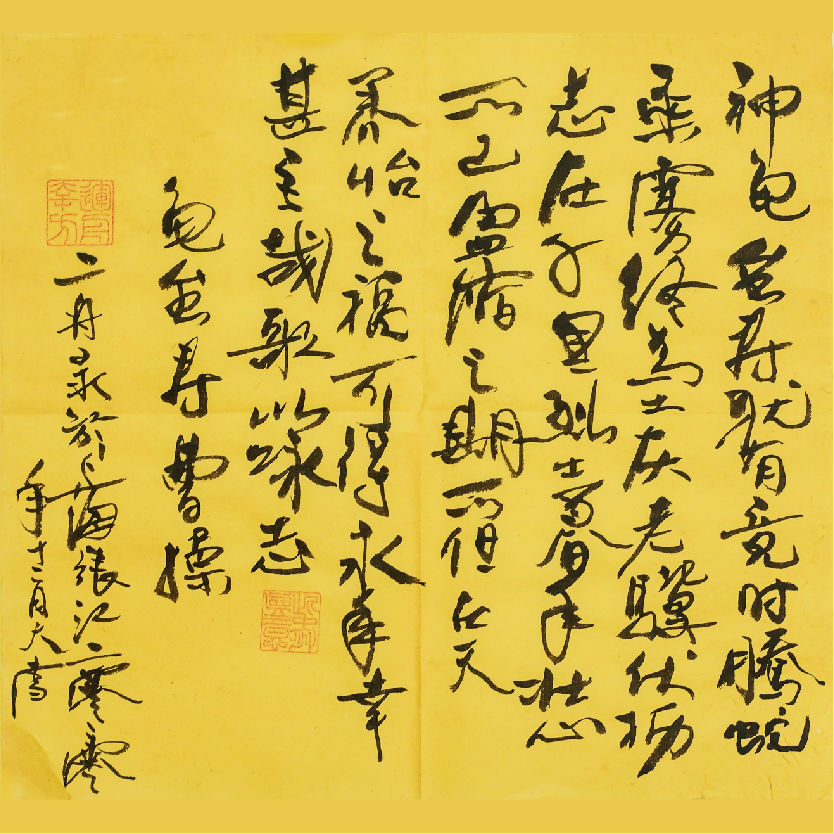 神龟虽寿猷有竟时腾蛇
乘雾终为土灰老骥伏枥
志在千里烈士暮年壮心
不已盈缩之期不但在天
养怡之福可得永年幸
甚至哉歌以咏志
龟虽寿曹操
二舟录於上海张江二零二零
年十二月大雪